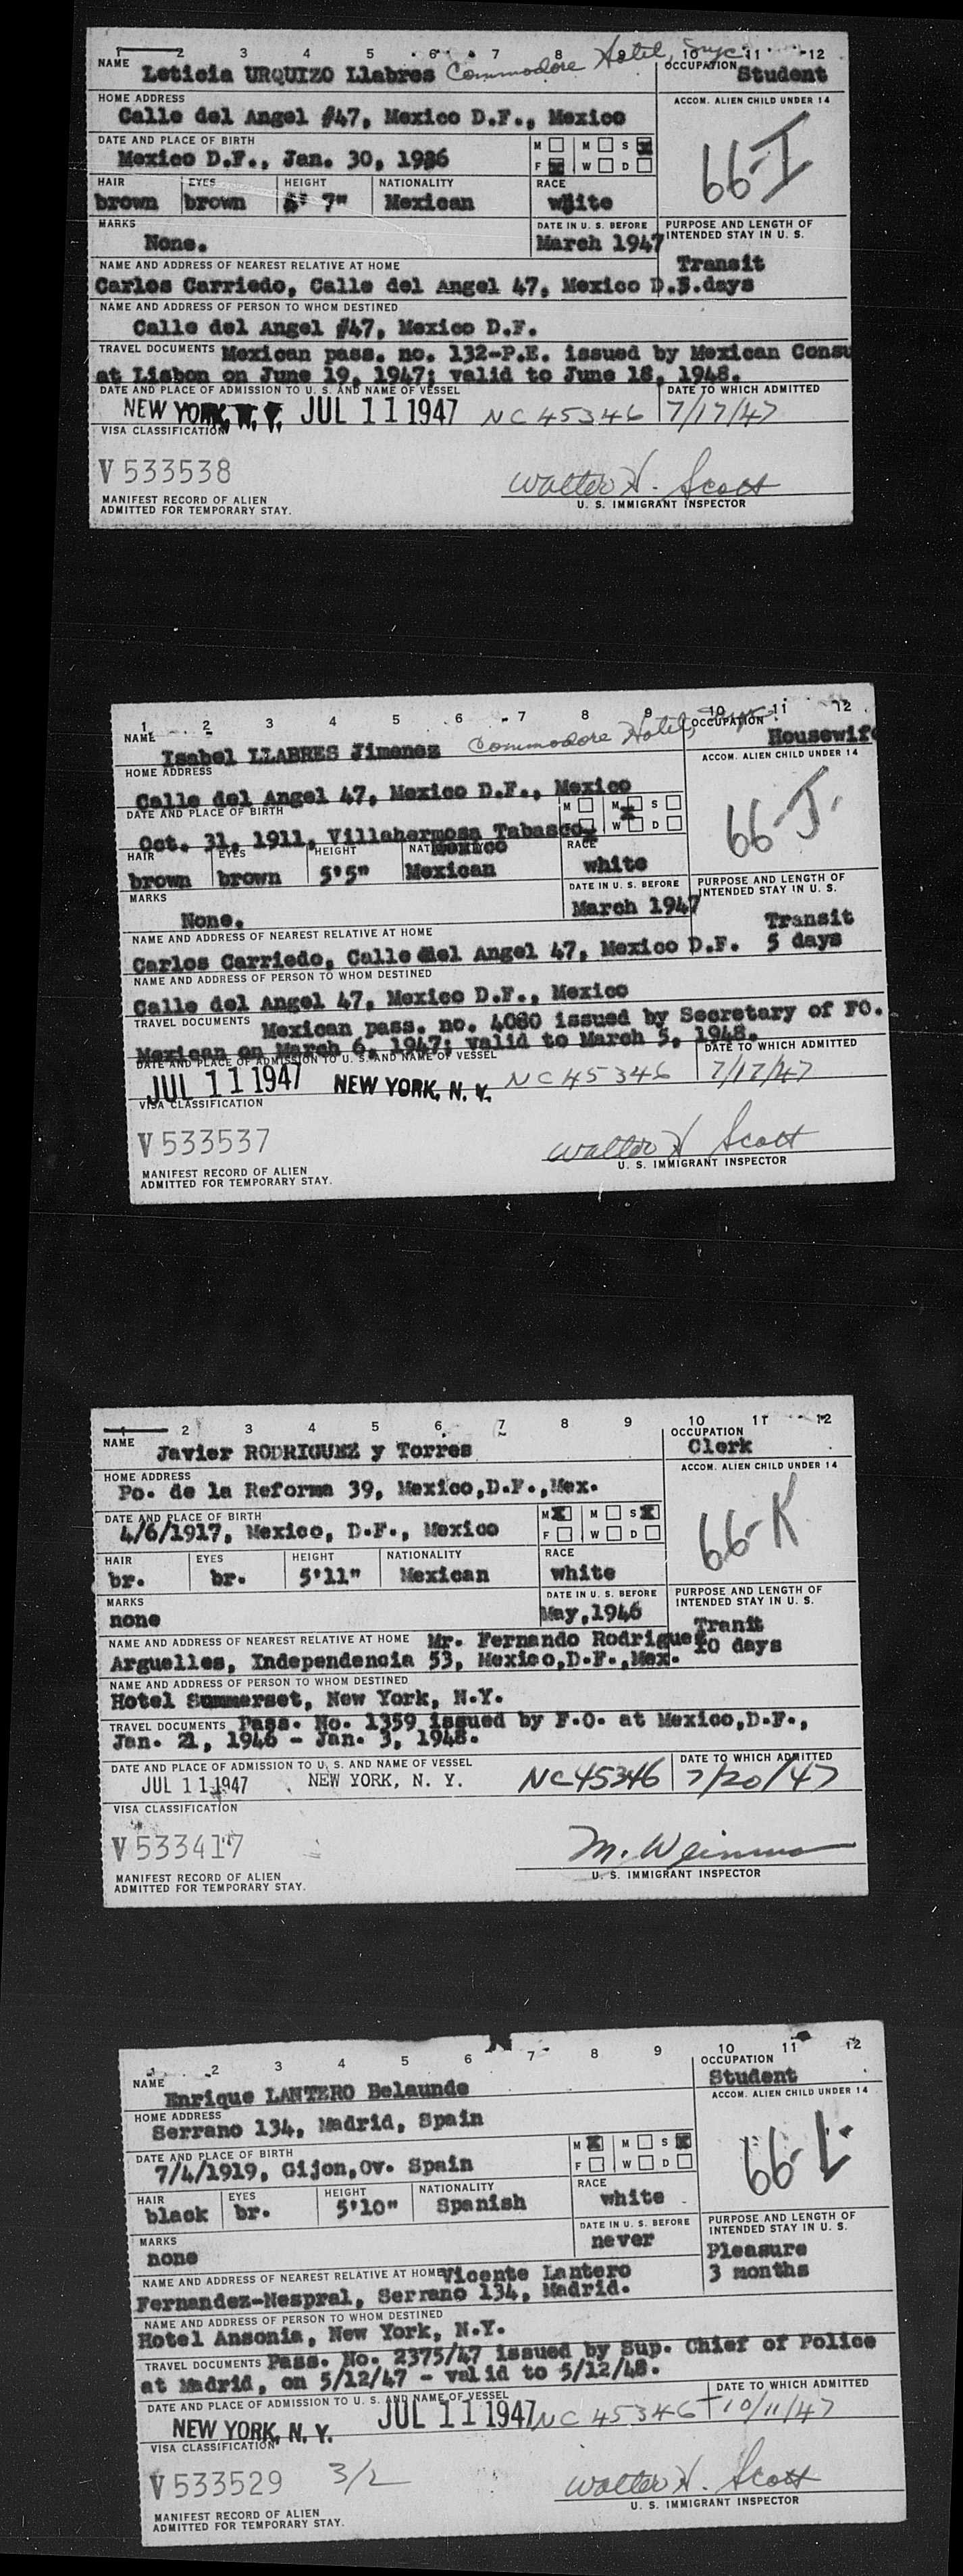 1 2 3 4 5 6 7 8 9 10 11 12
NAME Leticia URQUIZO Llabres Commodore Hotel, nyc. OCCUPATION Student
HOME ADDRESS ACCOM. ALIEN CHILD UNDER 14
Calle del Angel #47, Mexico D.F., Mexico
66-I
DATE AND PLACE OF BIRTH M M S
Mexico D.F., Jan. 30, 1936 F W D
HAIR EYES HEIGHT NATIONALITY RACE
brown brown 7" Mexican white
MARKS DATE IN U. S. BEFORE PURPOSE AND LENGTH OF
None. March 1947 INTENDED STAY IN U. S.
NAME AND ADDRESS OF NEAREST RELATIVE AT HOME Transit
Carlos Carriedo, Calle del Angel 47, Mexico D.F. days
NAME AND ADDRESS OF PERSON TO WHOM DESTINED
Calle del Angel #47, Mexico D.F.
TRAVEL DOCUMENTS Mexican pass. no. 132-P.E. issued by Mexican Consu
at Lisbon on June 19, 1947; valid to June 18, 1948.
DATE AND PLACE OF ADMISSION TO U. S. AND NAME OF VESSEL DATE TO WHICH ADMITTED
NEW YORK, N. Y. JUL 11 1947 NC 45346 7/17/47
VISA CLASSIFICATION
V 533538 Walter H. Scott
MANIFEST RECORD OF ALIEN U. S. IMMIGRANT INSPECTOR
ADMITTED FOR TEMPORARY STAY.
1 2 3 4 5 6 7 8 9 10 11 12
NAME Isabel LLABRES Jimenez Commodore Hotel, nyc. OCCUPATION Housewife
HOME ADDRESS ACCOM. ALIEN CHILD UNDER 14
Calle del Angel 47, Mexico D.F., Mexico
66-J.
DATE AND PLACE OF BIRTH M M S
Oct. 31, 1911, Villahermosa Tabasco, W D
Mexico
HAIR EYES HEIGHT NAT RACE
brown brown 5'5" Mexican white
MARKS DATE IN U. S. BEFORE PURPOSE AND LENGTH OF
None. March 1947 INTENDED STAY IN U. S.
NAME AND ADDRESS OF NEAREST RELATIVE AT HOME Transit
Carlos Carriedo, Calle del Angel 47, Mexico D.F. 5 days
NAME AND ADDRESS OF PERSON TO WHOM DESTINED
Calle del Angel 47, Mexico D.F., Mexico
TRAVEL DOCUMENTS Mexican pass. no. 4080 issued by Secretary of FO.
Mexican on March 6, 1947; valid to March 5, 1948.
DATE AND PLACE OF ADMISSION TO U. S. AND NAME OF VESSEL DATE TO WHICH ADMITTED
JUL 11 1947 NEW YORK, N. Y. NC 45346 7/17/47
VISA CLASSIFICATION
V 533537 Walter H Scott
MANIFEST RECORD OF ALIEN U. S. IMMIGRANT INSPECTOR
ADMITTED FOR TEMPORARY STAY.
1 2 3 4 5 6 7 8 9 10 11 12
NAME Javier RODRIGUEZ y Torres OCCUPATION Clerk
HOME ADDRESS ACCOM. ALIEN CHILD UNDER 14
Po. de la Reforma 39, Mexico,D.F.,Mex.
66-K
DATE AND PLACE OF BIRTH M M S
4/6/1917, Mexico, D.F., Mexico F W D
HAIR EYES HEIGHT NATIONALITY RACE
br. br. 5'11" Mexican white
MARKS DATE IN U. S. BEFORE PURPOSE AND LENGTH OF
none May,1946 INTENDED STAY IN U. S.
NAME AND ADDRESS OF NEAREST RELATIVE AT HOME Mr. Fernando Rodriguez Tranit
Arguelles, Independencia 53, Mexico,D.F.,Mex. 10 days
NAME AND ADDRESS OF PERSON TO WHOM DESTINED
Hotel Summerset, New York, N.Y.
TRAVEL DOCUMENTS Pass. No. 1359 issued by F.O. at Mexico,D.F.,
Jan. 21, 1946 - Jan. 3, 1948.
DATE AND PLACE OF ADMISSION TO U. S. AND NAME OF VESSEL DATE TO WHICH ADMITTED
JUL 11 1947 NEW YORK, N. Y. NC45346 7/20/47
VISA CLASSIFICATION
V 533417 M. Weinman
MANIFEST RECORD OF ALIEN U. S. IMMIGRANT INSPECTOR
ADMITTED FOR TEMPORARY STAY.
1 2 3 4 5 6 7 8 9 10 11 12
NAME Enrique LANTERO Belaunde OCCUPATION Student
HOME ADDRESS ACCOM. ALIEN CHILD UNDER 14
Serrano 134, Madrid, Spain
66-L
DATE AND PLACE OF BIRTH M M S
7/4/1919, Gijon,Ov. Spain F W D
HAIR EYES HEIGHT NATIONALITY RACE
black br. 5'10" Spanish white
MARKS DATE IN U. S. BEFORE PURPOSE AND LENGTH OF
none never INTENDED STAY IN U. S.
NAME AND ADDRESS OF NEAREST RELATIVE AT HOME Vicente Lantero Pleasure
Fernandez-Nespral, Serrano 134, Madrid. 3 months
NAME AND ADDRESS OF PERSON TO WHOM DESTINED
Hotel Ansonia, New York, N.Y.
TRAVEL DOCUMENTS Pass. No. 2375/47 issued by Sup. Chief of Police
at Madrid, on 5/12/47 - valid to 5/12/48.
DATE AND PLACE OF ADMISSION TO U. S. AND NAME OF VESSEL DATE TO WHICH ADMITTED
NEW YORK, N. Y. JUL 11 1947 NC 45346 10/11/47
VISA CLASSIFICATION
V 533529 3/2 Walter H. Scott
MANIFEST RECORD OF ALIEN U. S. IMMIGRANT INSPECTOR
ADMITTED FOR TEMPORARY STAY.